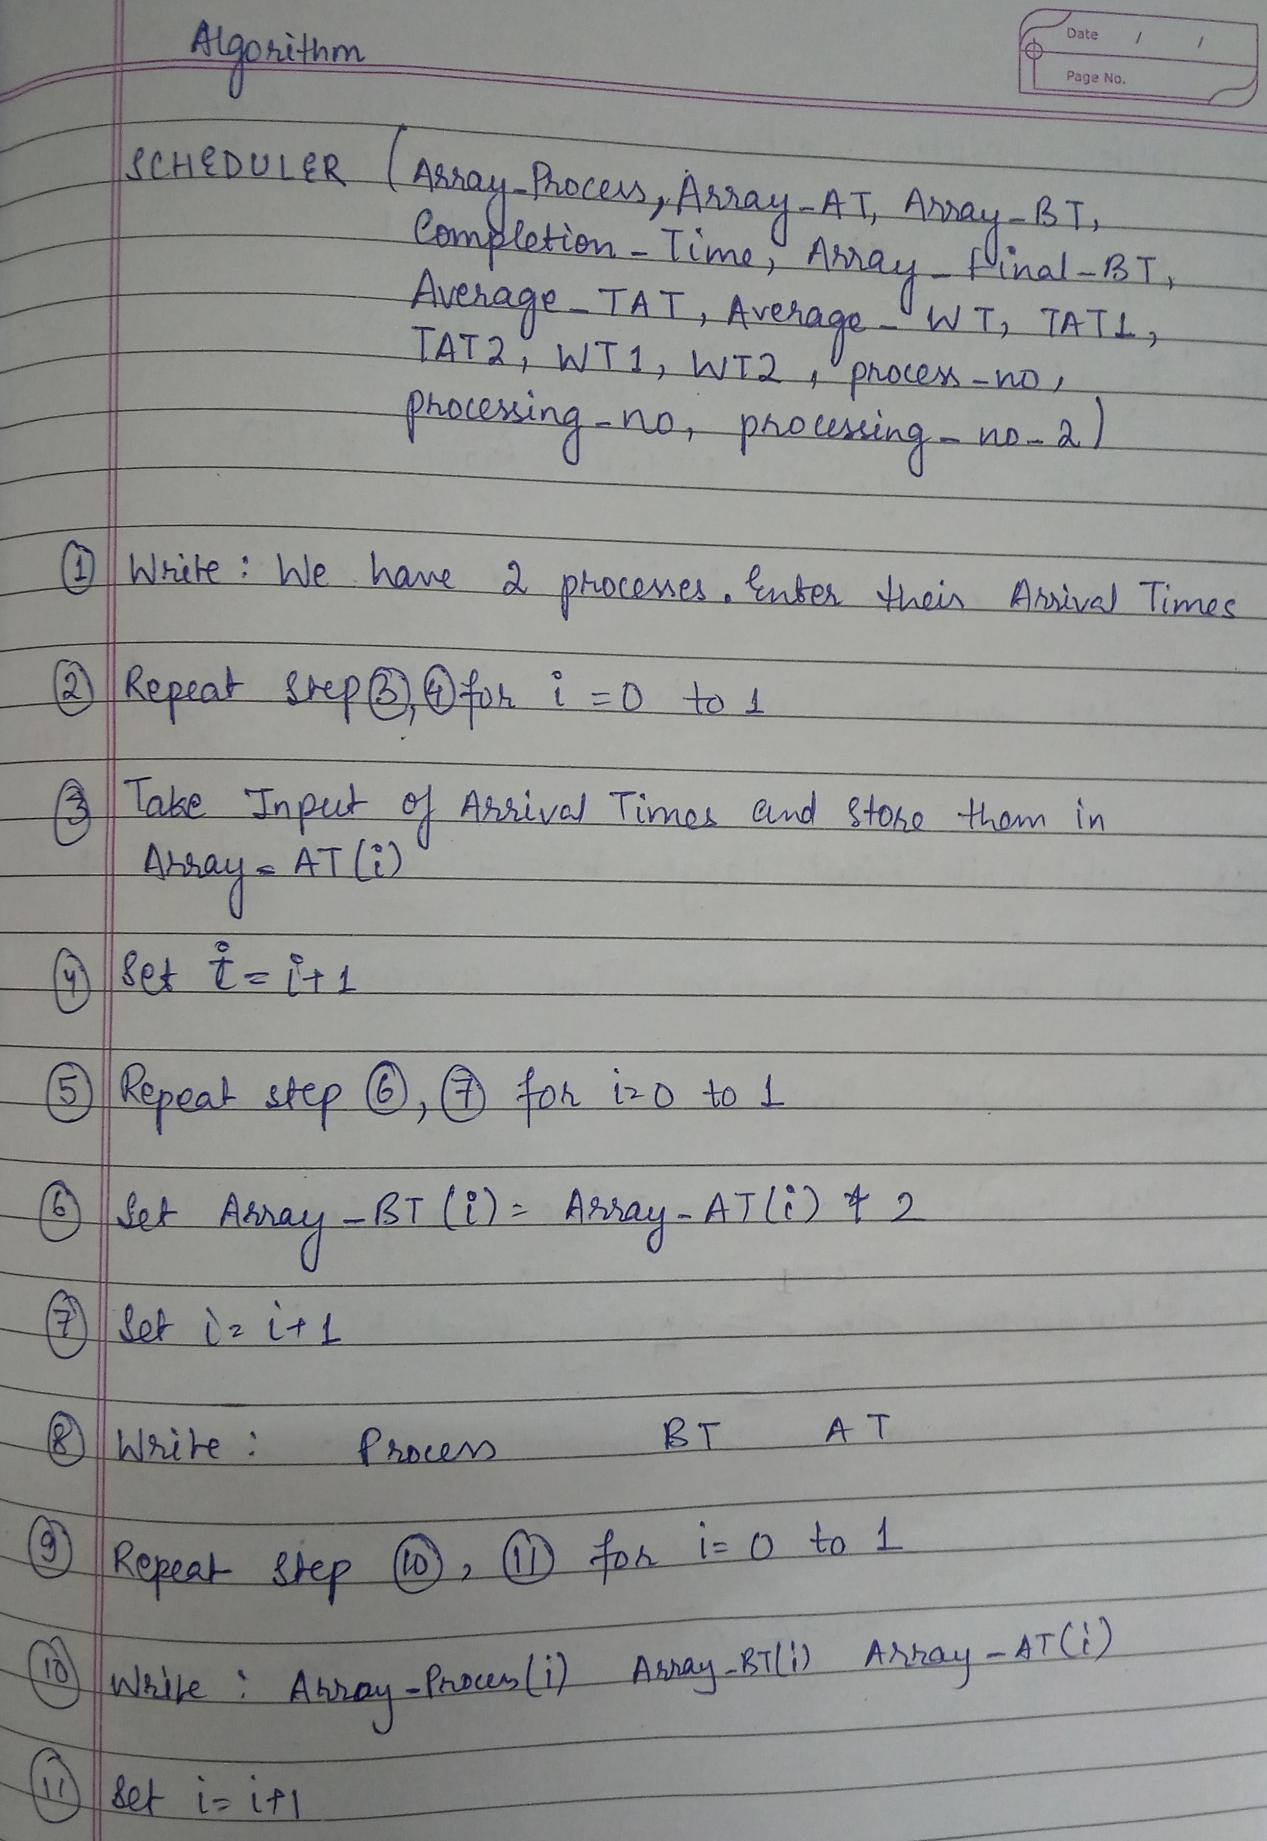 Algorithm
Date / /
Page No.
SCHEDULER (Array_Process, Array_AT, Array_BT,
Completion_Time, Array_Final_BT,
Average_TAT, Average_WT, TAT1,
TAT2, WT1, WT2, process_no,
processing_no, processing_no_2)
① Write : We have 2 processes. Enter their Arrival Times
② Repeat step ③, ④ for i = 0 to 1
③ Take Input of Arrival Times and store them in
Array_AT(i)
④ Set i = i+1
⑤ Repeat step ⑥, ⑦ for i=0 to 1
⑥ Set Array_BT(i) = Array_AT(i) * 2
⑦ Set i = i+1
⑧ Write : Process BT AT
⑨ Repeat step ⑩, ⑪ for i= 0 to 1
⑩ Write : Array_Process(i) Array_BT(i) Array_AT(i)
⑪ Set i= i+1